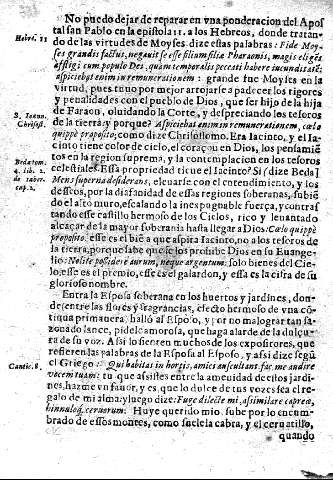 No puedo dejar de reparar en vna ponderacion del Apos
tal san Pablo en la epistola 11. a los Hebreos, donde tratan-
Hebre. 11
do de las virtudes de Moyses dize estas palabras: Fide Moy-
ses grandis factus, negauit se esse filium filiæ Pharaonis, magis eligés
affligi cum populo Dei, quàm temporalis peccati habere iucunditaté:
aspiciebat enim in remunerationem: grande fue Moyses en la
virtud, pues tuuo por mejor arrojarse a padecer los rigores
y penalidades con el pueblo de Dios, que ser hijo de la hija
de Faraon, oluidando la Corte, y despreciando los tesoros
S. Ioann.
Chrisost.
de la tierra; porque? Aspiciebat enim in remunerationem, cælo
quippè proposito; como dize Chrisostomo. Era Iacinto, y el Ia-
cinto tiene color de cielo, el coraçou en Dios, los pensamié
tos en la region suprema, y la contemplacion en los tesoros
Beda tom.
4. lib. 2.
de taber.
cap. 2.
celestiales. Esta propriedad tiene el Iacinto? Si (dize Beda)
Men superna desiderans, eleuarse con el entendimiento, y los
desseos, por la diafanidad de essas regiones soberanas, subié
do el alto muro, escalando la inexpugnable fuerça, y contras
tando esse castillo hermoso de los Cielos, rico y leuantado
alcaçar de la mayor soberania hasta llegar a Dios. Cælo quippè
proposito. esse es el bié a que aspira Iacinto, no a los tesoros de
la tierra, porque sabe que se los prohibe Dios en su Euange-
lio: Nolite possidere aurum, neque argentum. solo bienes del Cie-
lo, esse es el premio, esse es el galardon, y essa es la cifra de su
glorioso nombre.
Entra la Esposa soberana en los huertos y jardines, don-
de (entre las flores y fragrancias, efecto hermoso de vna có-
tigua primauera) hallò al Esposo, y por no malograr tan sa-
zonado lance, pidele amorosa, que haga alarde de la dulçu-
ra de su voz. Assi lo sienten muchos de los expositores, que
refieren las palabras de la Esposa al Esposo, y assi dize segú
Cantic. 8.
el Griego: Qui habitas in hortis, amici auscultant. fac me audire
vocem tuam: tu que assistes entre la amenidad de estos jardi-
nes, hazme vn fauor, y es, que lo dulce de tus vozes sea el rega-
lo de mi alma: y luego dize: Fuge dilecte mi, assimilare capreæ,
hinnuloq̃, ceruorum: Huye querido mio, sube por lo encum-
brado de essos montes, como suele la cabra, y el ceruatillo,
quando